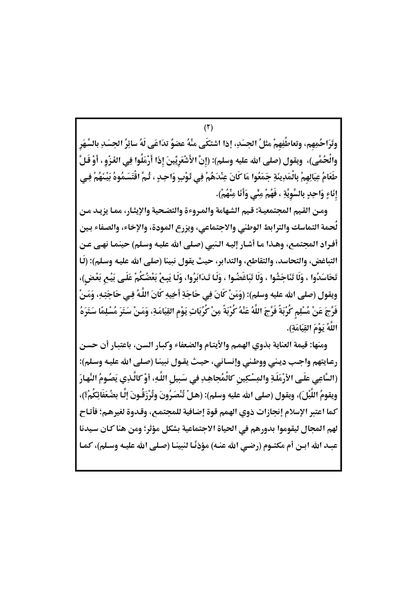 (٢)
وتَرَاحُمِهِم، وتعاطُفِهِمْ مثلُ الجسَدِ، إذا اشتكَى منْهُ عضوٌ تدَاعَى لَهُ سائِرُ الجسَدِ بالسَّهَرِ
والْحُمَّى)، ويقول (صلى الله عليه وسلم): (إِنَّ الأَشْعَرِيِّينَ إِذَا أَرْمَلُوا فِي الغَزْوِ ، أَوْ قَلَّ
طَعَامُ عِيَالِهِمْ بِالْمَدِينَةِ جَمَعُوا مَا كَانَ عِنْدَهُمْ فِي ثَوْبٍ وَاحِدٍ ، ثُمَّ اقْتَسَمُوهُ بَيْنَهُمْ فِي
إِنَاءٍ وَاحِدٍ بِالسَّوِيَّةِ ، فَهُمْ مِنِّي وَأَنَا مِنْهُمْ).
ومن القيم المجتمعية: قيم الشهامة والمروءة والتضحية والإيثار، مما يزيد من
لُحمة التماسك والترابط الوطني والاجتماعي، ويزرع المودة، والإخاء، والصفاء بين
أفراد المجتمع، وهذا ما أشار إليه النبي (صلى الله عليه وسلم) حينما نهى عن
التباغض، والتحاسد، والتقاطع، والتدابر، حيث يقول نبينا (صلى الله عليه وسلم): (لَا
تَحَاسَدُوا ، وَلَا تَنَاجَشُوا ، وَلَا تَبَاغَضُوا ، وَلَا تَدَابَرُوا، وَلَا يَبِعْ بَعْضُكُمْ عَلَى بَيْعِ بَعْضٍ)،
ويقول (صلى الله عليه وسلم): (وَمَنْ كَانَ فِي حَاجَةِ أَخِيهِ كَانَ اللَّهُ فِي حَاجَتِهِ، وَمَنْ
فَرَّجَ عَنْ مُسْلِمٍ كُرْبَةً فَرَّجَ اللَّهُ عَنْهُ كُرْبَةً مِنْ كُرُبَاتِ يَوْمِ القِيَامَةِ، وَمَنْ سَتَرَ مُسْلِمًا سَتَرَهُ
اللَّهُ يَوْمَ القِيَامَةِ).
ومنها: قيمة العناية بذوي الهمم والأيتام والضعفاء وكبار السن، باعتبار أن حسن
رعايتهم واجب ديني ووطني وإنساني، حيث يقول نبينا (صلى الله عليه وسلم):
(السَّاعِي عَلَى الأَرْمَلَةِ وَالمِسْكِينِ كَالْمُجَاهِدِ فِي سَبِيلِ اللَّهِ، أوْ كالَّذي يَصُومُ النَّهارَ
ويقومُ اللَّيْلَ)، ويقول (صلى الله عليه وسلم): (هَلْ تُنْصَرُونَ وَتُرْزَقُونَ إِلَّا بِضُعَفَائِكُمْ؟)،
كما اعتبر الإسلام إنجازات ذوي الهمم قوة إضافية للمجتمع، وقدوة لغيرهم؛ فأتاح
لهم المجال ليقوموا بدورهم في الحياة الاجتماعية بشكل مؤثر؛ ومن هنا كان سيدنا
عبد الله ابن أم مكتوم (رضي الله عنه) مؤذنًا لنبينا (صلى الله عليه وسلم)، كما